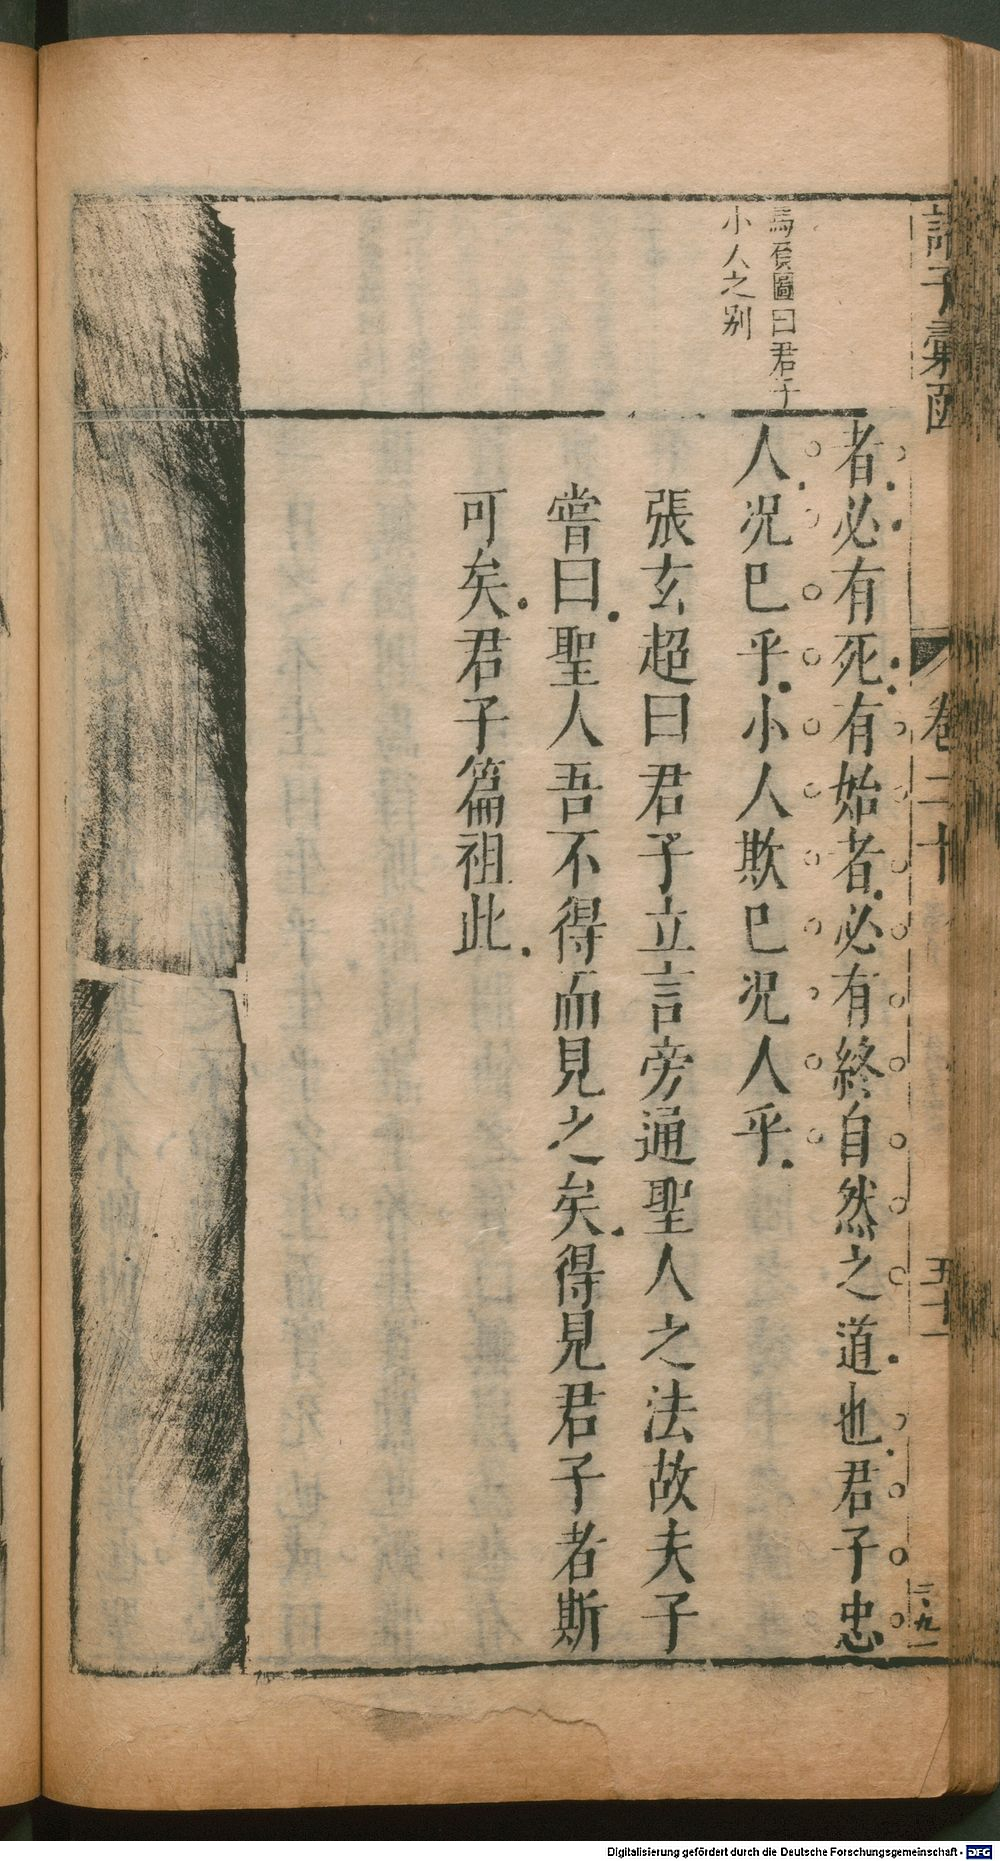 諸子彙函
卷二十
五十一
三九一
馬質圖曰君子
小人之別
者必有死有始者必有終自然之道也君子忠
人况巳乎小人欺巳况人乎
張玄超曰君子立言旁通聖人之法故夫子
嘗曰聖人吾不得而見之矣得見君子者斯
可矣君子篇祖此
Digitalisierung gefördert durch die Deutsche Forschungsgemeinschaft - DFG